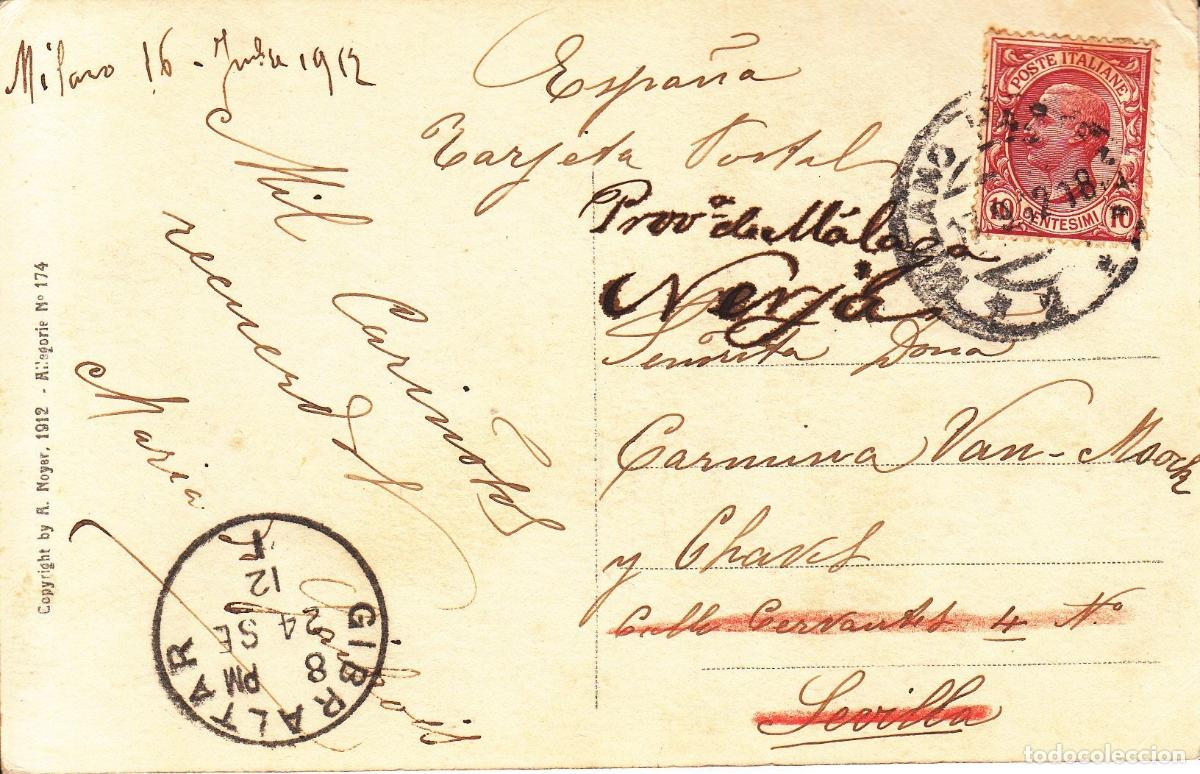 Milano 16 - 1912
Mil Cariñosos
recuerdos
Maria
España
Tarjeta Postal
Provª de Málaga
Nerja
Señorita Dona
Carmina Van-Moock
y Chaves
Calle Cervantes 4 Nº
Sevilla
POSTE ITALIANE
10 CENTESIMI 10
MILANO
GIBRALTAR
8 PM
24 SE
12
Copyright by A. Noyer, 1912 - Allegorie Nº 174
todocoleccion